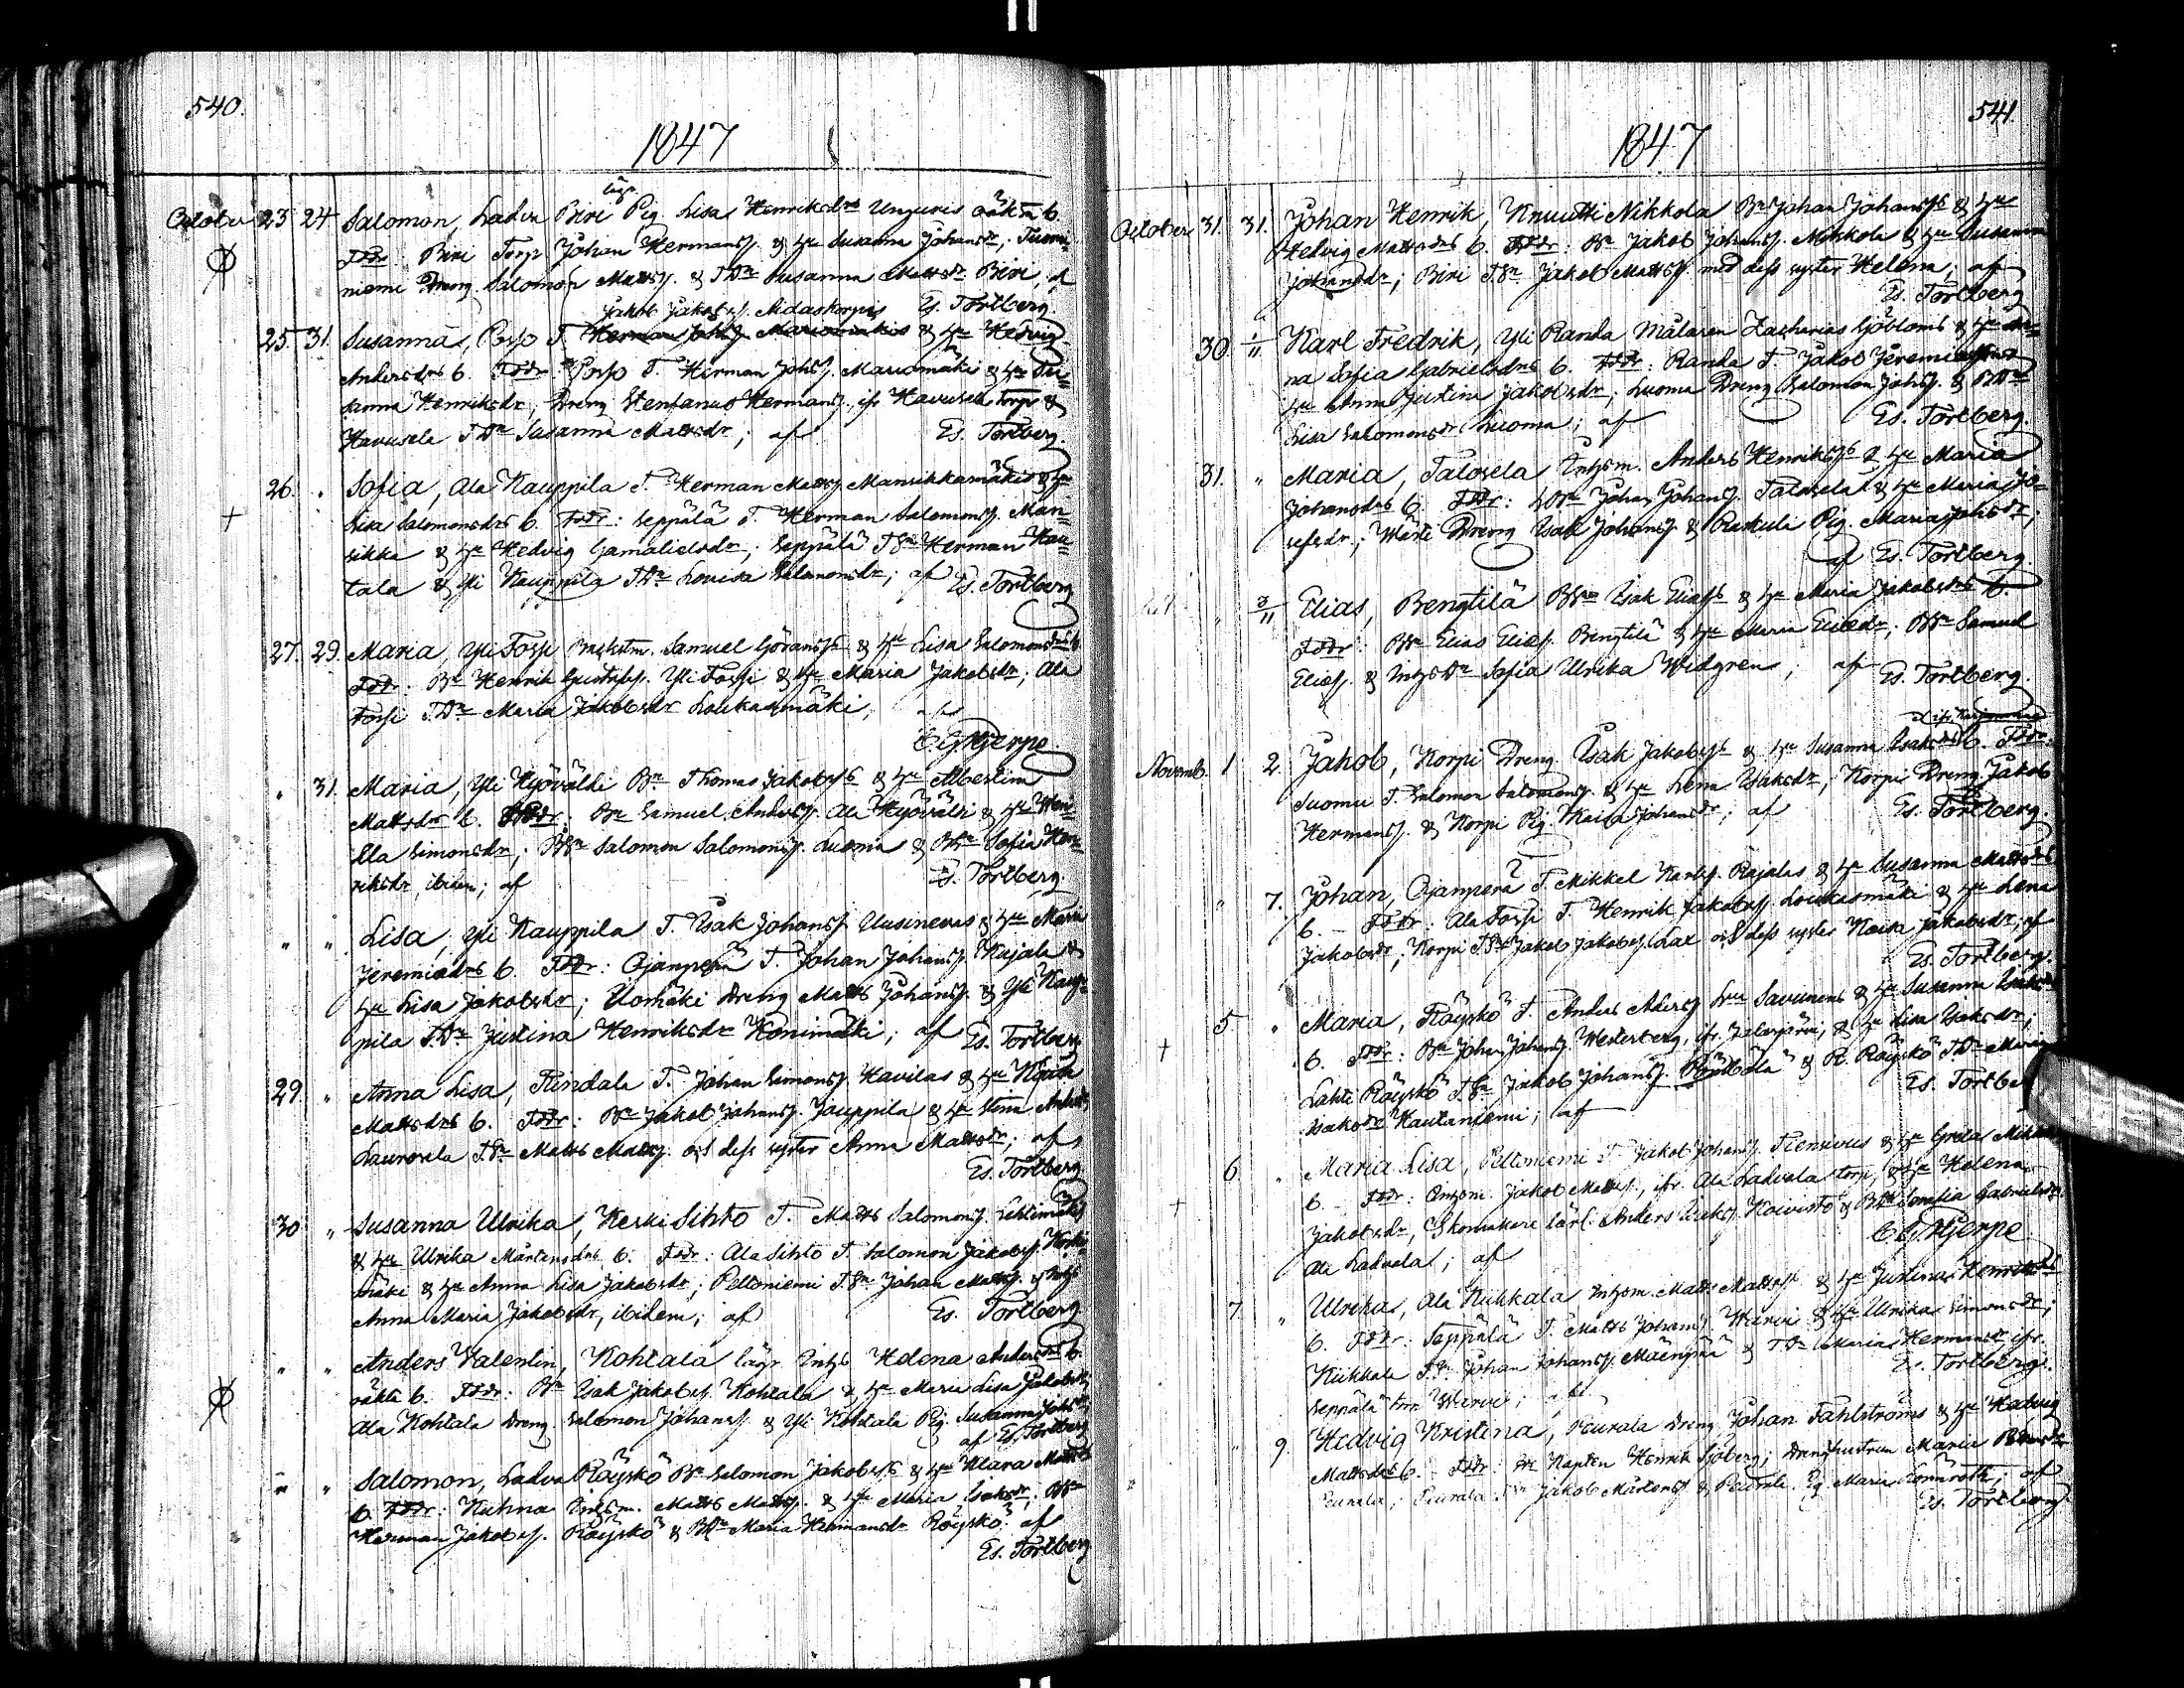 540.
1847
October 23. 24 Salomon, Ladva Piri lägr. Pig. Lisa Henriksdrs Unguris oäkta b.
Fddr: Piri Torp Johan Hermanss. & Hu Susanna Johansdr, Tuomi-
niemi Dreng Salomon Matts. & T.Dr Susanna Mattsdr Piri, af
Es. Törtberg.
Jakob Jakobss. Sidaskorpis
25. 31. Susanna, Posso T. Herman Johss. Mariamäkis & Hu Hedvig
Andersdrs b. Fddr: Posso T. Herman Johss. Mariamäki & Hu Su-
sanna Henriksdr, Dreng Stenfanus Hermans., ifr. Havusela torp &
Havusela T.Dr Susanna Mattsdr; af Es. Törtberg
26. " Sofia, Ala Kauppila T. Herman Matts. Mansikkamäkis & Hu
Lisa Salomonsdrs b. Fddr: Seppälä T. Herman Salomonss. Man-
sikka & Hu Hedvig Gamalielsdr; Seppälä T.Sn Herman Hau-
tala & Yli Kauppila T.Dr Lovisa Salomonsdr; af Es. Törtberg
27. 29. Maria, Yli Fossi Backstm. Samuel Göranss. & Hu Lisa Salomonsdrs b.
Fddr: Bn Henrik Gustafss. Yli Fossi & Hu Maria Jakobsdr; Ala
Fossi T.Dr Maria Jakobsdr Loukasmäki;
C G Hjerpe
" 31. Maria, Yli Hyövälti Bn Thomas Jakobss. & Hu Albertina
Mattsdrs b. Fddr: Bn Samuel Anderss. Ala Hyövälti & Hu Hen-
Ella Simonsdr; BSn Salomon Salomonss. Luoma & BDr Sofia Hen-
riksdr, ibidem; af Es. Törtberg.
" " Lisa, Yli Kauppila T. Isak Johanss. Uusinevas & Hu Maria
Jeremiædrs b. Fddr: Ojanperä T. Johan Johanss. Kajala &
Hu Lisa Jakobsdr; Uomäki Dreng Matts Johanss. & Yli Kaup-
pila T.Dr Justina Henriksdr Hönimäki; af Es. Törtberg
29. " Anna Lisa, Rendala T. Johan Simonss. Havilas & Hu Kajsa
Mattsdrs b. Fddr: Bn Jakob Johanss. Jauppila & Hu Stina Andersdr
Laurosela T.Sn Matts Matts. och dess syster Anna Mattsdr; af
Es. Törtberg
30 " Susanna Ulrika, Kerki Sihto T. Matts Salomonss. Lehtimäkis
& Hu Ulrika Mårtensdrs b. Fddr: Ala Sihto T. Salomon Jakobss. Koski-
mäki & Hu Anna Lisa Jakobsdr; Peltoniemi T.Sn Johan Matts. &
Anna Maria Jakobsdr, ibidem; af Es. Törtberg
" " Anders Valentin, Kohtala lägr. Inhs Helena Andersdrs b.
oäkta b. Fddr: Bn Isak Jakobss. Kohtala & Hu Maria Lisa Jakobsdr;
Ala Kohtala Dreng Salomon Johanss. & Yli Kohtala Pig. Susanna Johsdr;
af Es. Törtberg
" " Salomon, Ladva Röyskö Bn Salomon Jakobss. & Hu Klara Mattsdrs
b. Fddr: Kuhna Inhsm. Matts Matts. & Hu Maria Isaksdr; BSn
Herman Jakobss. Röyskö & BDr Maria Hermansdr Röyskö; af
Es. Törtberg
541.
1847
October 31. 31. Johan Henrik, Knuutti Nikkola Bn Johan Johanss. & Hu
Hedvig Mattsdrs b. Fddr: Bn Jakob Johanss. Nikkola & Hu Susanna
Johansdr; Piri T.Sn Jakob Matts. med dess syster Helena; af
Es. Törtberg
30. 1/11 Karl Fredrik, Yli Randa Målaren Zacharias Sjöbloms & Hu An-
na Sofia Gabrielsdrs b. Fddr: Randa T. Jakob Jeremiæss.
Hu Anna Justina Jakobsdr; Luoma Dreng Salomon Johss. & BDr
Lisa Salomonsdr Luoma; af Es. Törtberg.
31. " Maria, Talosela Inhsm. Anders Henrikss. & Hu Maria
Johansdrs b. Fddr: Bn Johan Johanss. Talosela & Hu Maria Jo-
sefsdr; Märti Dreng Isak Johanss. & Raskuli Pig. Maria Johsdr;
af Es. Törtberg
" 3/11 Elias, Bengtilä BSn Isak Eliass. & Hu Maria Jakobsdrs b.
Fddr: Bn Elias Eliass. Bengtilä & Hu Maria Eliædr; BSn Samuel
Eliass. & InhsDr Sofia Ulrika Widgren; af Es. Törtberg.
Novemb. 1 2. Jakob, Korpi Dreng Isak Jakobss. & Hu Susanna Isaksdrs b. Fddr:
Suomu T. Salomon Salomonss. & Hu Lena Isaksdr; Korpi Dreng Jakob
Hermanss. & Korpi Pig. Kaisa Johansdr; af Es. Törtberg.
" 7. Johan, Ojanperä T. Mikkel Karlss. Rajalas & Hu Susanna Mattsdrs
b. Fddr: Ala Fossi T. Henrik Jakobss. Loukasmäki & Hu Lena
Jakobsdr; Korpi T.Sn Jakob Jakobss. Lax och dess syster Kaisa Jakobsdr; af
Es. Törtberg.
5. " Maria, Röyskö T. Anders Anderss. Savunens & Hu Susanna Isaksdrs
b. Fddr: Bn Johan Johanss. Westerberg, ifr. Jalasjärvi, & Hu Lisa Isaksdr;
Lahti Röyskö T.Sn Jakob Johanss. & R. Röyskö T.Dr Maria
Isaksdr Hautaniemi; af Es. Törtberg
6. " Maria Lisa, Peltoniemi T. Jakob Johanss. Tiensivus & Hu Greta
b. Fddr: Jakob Matts., ifr. Ala Ladvala torp, & Hu Helena
Jakobsdr, Skomakare lärl. Anders Isakss. Koivisto & Gabrielsdr
Ala Ladvala; af C G Hjerpe
7. " Ulrika, Ala Kuhkala Inhsm. Matts Mattss. & Hu Justina Henriksdrs
b. Fddr: Seppälä T. Matts Johanss. Warvi & Hu Ulrika Simonsdr;
Kuhkala T.Sn Johan Johanss. Mäenpää & T.Dr Maria Hermansdr ifr.
Seppälä torp Warvi; af Es. Törtberg.
" 9. Hedvig Kristina, Peurala Dreng Johan Fahlströms & Hu Hedvig
Mattsdrs b. Fddr: Hr Kapten Henrik Sjöberg; Drenghustrun Maria
Peurala; Peurala T.Sn Jakob Mårtenss. & Peurala Pig. Maria Lönnroth; af
Es. Törtberg